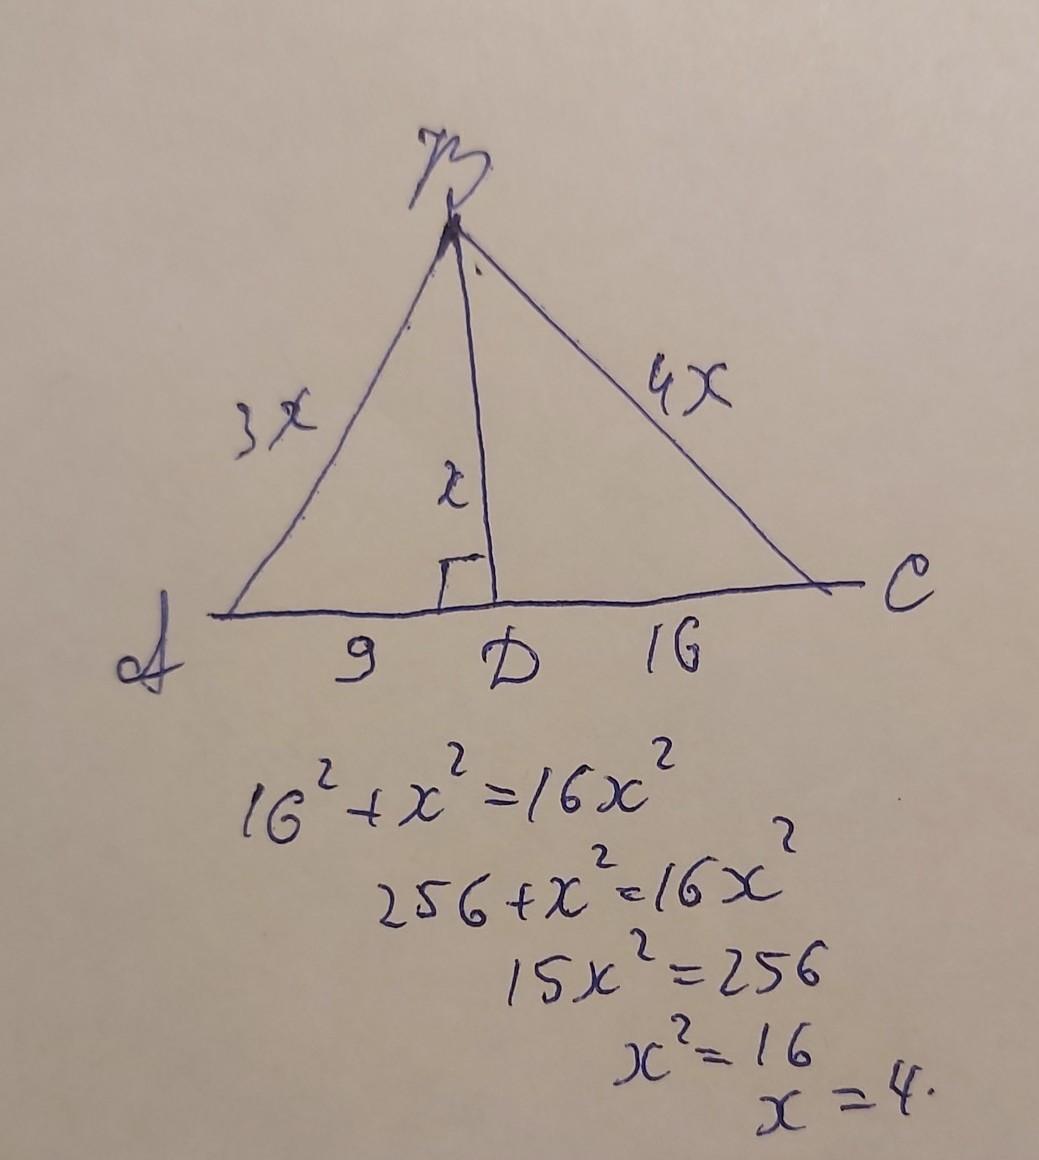 B
3x
4x
x
A
9
D
16
C
16² + x² = 16x²
256 + x² = 16x²
15x² = 256
x² = 16
x = 4.